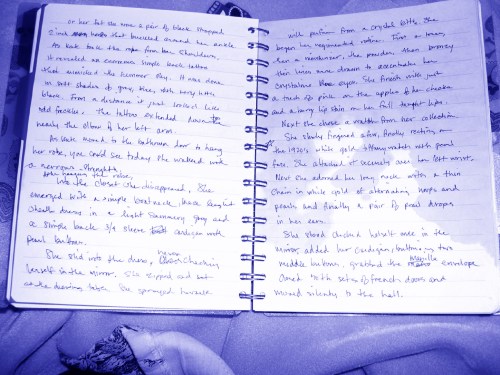 on her feet she wore a pair of black strapped
5 inch heels that buckled around her ankle.
As Kate took the robe from her shoulders,
it revealed an enormous simple back tattoo
that mimicked the summer sky. It was done
in soft shades of gray, tans, with baby
blues. From a distance it just looked like
odd freckles. The tattoo extended down to
nearly the elbow of her left arm.
As Kate moved to the bathroom door to hang
her robe, you could see today she walked with
a nervous
her robe,
Into the closet she disappeared. She
emerged with a simple boatneck, knee length
sheath dress in a light Summery gray and
a simple back 3/4 sleeve cardigan with
pearl buttons.
She slid into the dress, never checking
herself in the mirror. She zipped and sat
at the dressing table. She sprayed herself
with perfume from a crystal bottle. She
began her regimented routine. First a toner,
then a moisturizer, the powder, then bronzy
thin liner were drawn to accentuate her
crystalline eyes. She finished with just
a touch of pink on the apples of her cheeks
and a berry lip stain on her full lips.
Next she chose a watch from her collection.
She slowly fingered a few, finally resting on
the 1920's white gold watch with pearl
face. She attached it securely over her left wrist.
Next she adorned her long neck with a thin
chain in white gold of alternating hoops and
pearls and finally a pair of pearl drops
in her ears.
She stood checked herself once in the
mirror, added her cardigan, buttoning two
middle buttons, grabbed the manilla envelope
closed both sets of french doors and
moved silently to the hall.